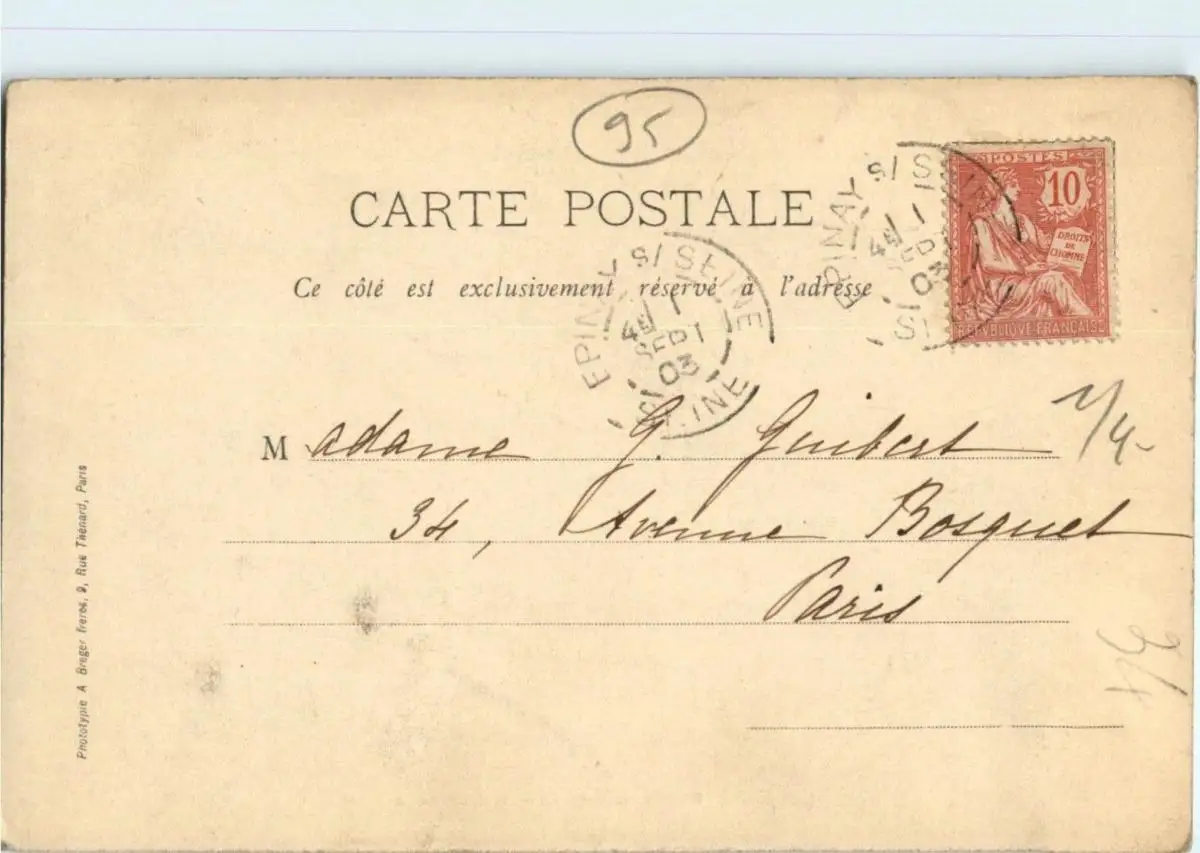 95
CARTE POSTALE
Ce côté est exclusivement réservé à l'adresse
POSTES
10
DROITS
DE
L'HOMME
REPUBLIQUE FRANÇAISE
EPINAY S/ SEINE
4E
1
SEPT
03
SEINE
EPINAY S/ SEINE
4E
1
SEPT
03
Madame G. Guibert
34, Avenue Bosquet
Paris
Phototypie A Breger frères, 9, Rue Thénard, Paris